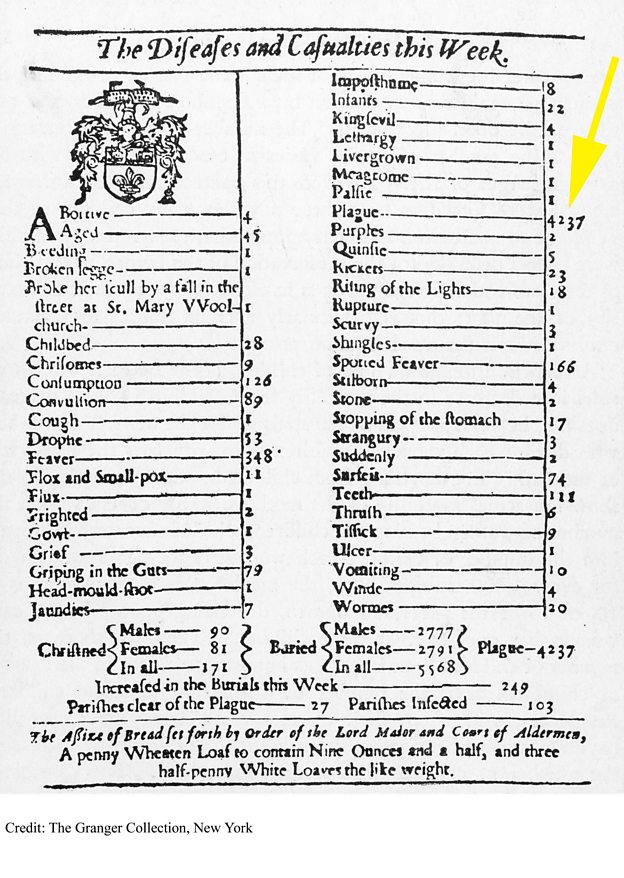 The Diſeaſes and Caſualties this Week.
ABortive — 4
Aged — 45
Bleeding — 1
Broken legge — 1
Broke her ſcull by a fall in the
ſtreet at St. Mary VVool-
church — 1
Childbed — 28
Chriſomes — 9
Conſumption — 126
Convulſion — 89
Cough — 1
Dropſie — 53
Feaver — 348
Flox and Small-pox — 11
Flux — 1
Frighted — 2
Gowt — 1
Grief — 3
Griping in the Guts — 79
Head-mould-ſhot — 1
Jaundies — 7
Impoſthume — 8
Infants — 22
Kingſevil — 4
Lethargy — 1
Livergrown — 1
Meagrome — 1
Palſie — 1
Plague — 4237
Purples — 2
Quinſie — 5
Rickets — 23
Riſing of the Lights — 18
Rupture — 1
Scurvy — 3
Shingles — 1
Spotted Feaver — 166
Stilborn — 4
Stone — 2
Stopping of the ſtomach — 17
Strangury — 3
Suddenly — 2
Surfeit — 74
Teeth — 111
Thruſh — 6
Tiſſick — 9
Ulcer — 1
Vomiting — 10
Winde — 4
Wormes — 20
Chriſtned { Males — 90 Females — 81 In all — 171 } Buried { Males — 2777 Females — 2791 In all — 5568 } Plague — 4237
Increaſed in the Burials this Week — 249
Pariſhes clear of the Plague — 27 Pariſhes Infected — 103
The Aſſize of Bread ſet forth by Order of the Lord Maior and Court of Aldermen,
A penny Wheaten Loaf to contain Nine Ounces and a half, and three
half-penny White Loaves the like weight.
Credit: The Granger Collection, New York